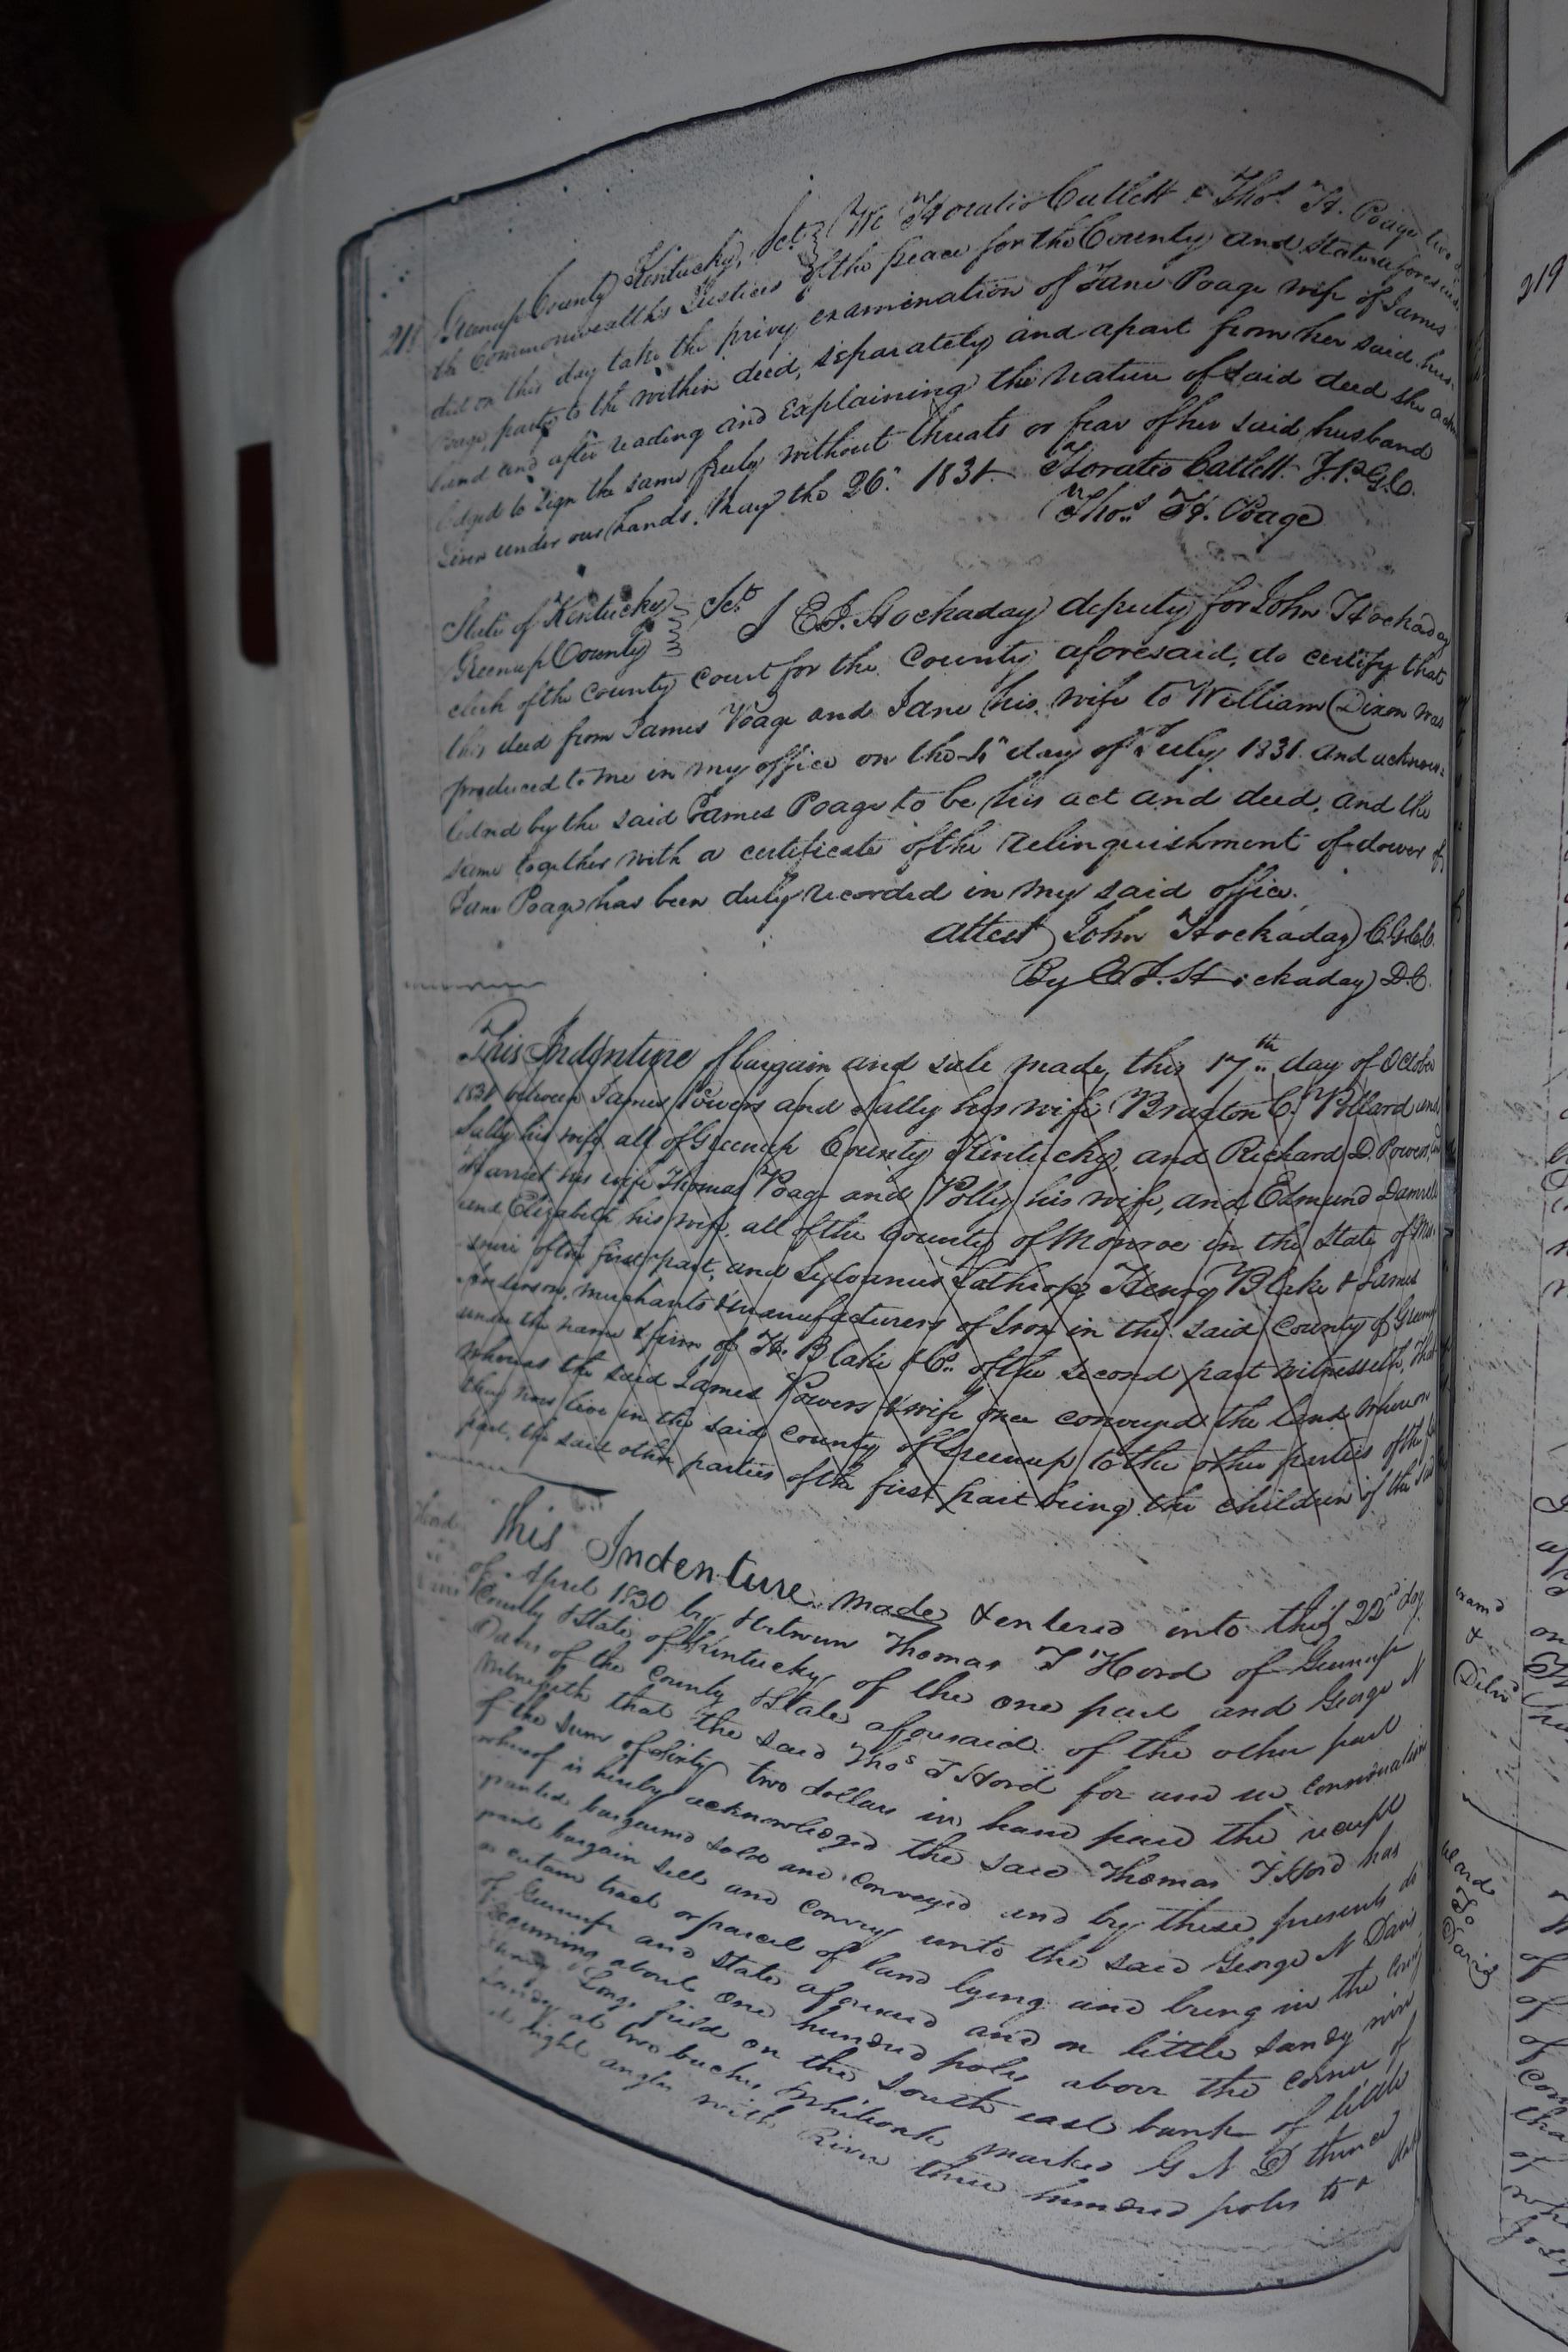 218
Greenup County Kentucky, Sct. We Horatio Catlett & Thos. H. Poage two of
the Commonwealths Justices of the peace for the County and state aforesaid
did on this day take the privy examination of Jane Poage wife of James
Poage, parties to the within deed, separately and apart from her said hus-
band and after reading and explaining the nature of said deed she ackn
ledged to sign the same freely without threats or fear of her said husband
Given under our hands. May the 26. 1831. Horatio Catlett J.P.G.C.
Thos. H. Poage
State of Kentucky Sct. I E.J. Hockaday deputy for John Hockaday
Greenup County
clerk of the county court for the County aforesaid, do certify that
this deed from James Poage and Jane his wife to William Dixon was
produced to me in my office on the 4th day of July 1831. and acknow-
ledged by the said James Poage to be his act and deed, and the
same together with a certificate of the relinquishment of dower of
Jane Poage has been duly recorded in my said office.
attest John Hockaday C.G.C.C.
By E.J. Hockaday D.C.
This Indenture of bargain and sale made this 17th day of October
1831 between James Powers and Sally his wife Braxton C. Pollard and
Sally his wife all of Greenup County Kintucky, and Richard D. Powers, and
Harriet his wife Thomas Poage and Polly his wife, and Edmund Damrell
and Elizabeth his wife, all of the County of Monroe in the State of Mis-
souri of the first part, and Sylvanus Lathrop, Henry Blake & James
Anderson, merchants & manufacturers of Iron in the said County of Greenup
under the name & firm of H. Blake & Co. of the second part witnesseth, That
whereas the said James Powers & wife once conveyed the land whereon
they now live in the said county of Greenup to the other parties of the first
part, the said other parties of the first part being the children of the said
Hord
to
Davis
This Indenture made & entered into this 22d day
of April 1830 by & between Thomas T Hord of Greenup
County & State of Kintucky of the one part and George N
Davis of the County & State aforesaid of the other part
Witnesseth that the said Thos T Hord for and in consideration
of the sum of sixty two dollars in hand paid the receipt
whereof is hereby acknowledged the said Thomas T Hord has
granted bargained sold and conveyed and by these presents do
grant bargain sell and convey unto the said George N Davis
a certain tract or parcel of land lying and being in the County
of Greenup and State aforesaid and on little Sandy river
Beginning about one hundred poles above the corner of
Long field on the South east bank of little
Sandy at two buches Whiteoak marked G N D thence
at right angles with River three hundred poles to a
219
Exam'd
&
Deliv'd
Heard
To
Davis